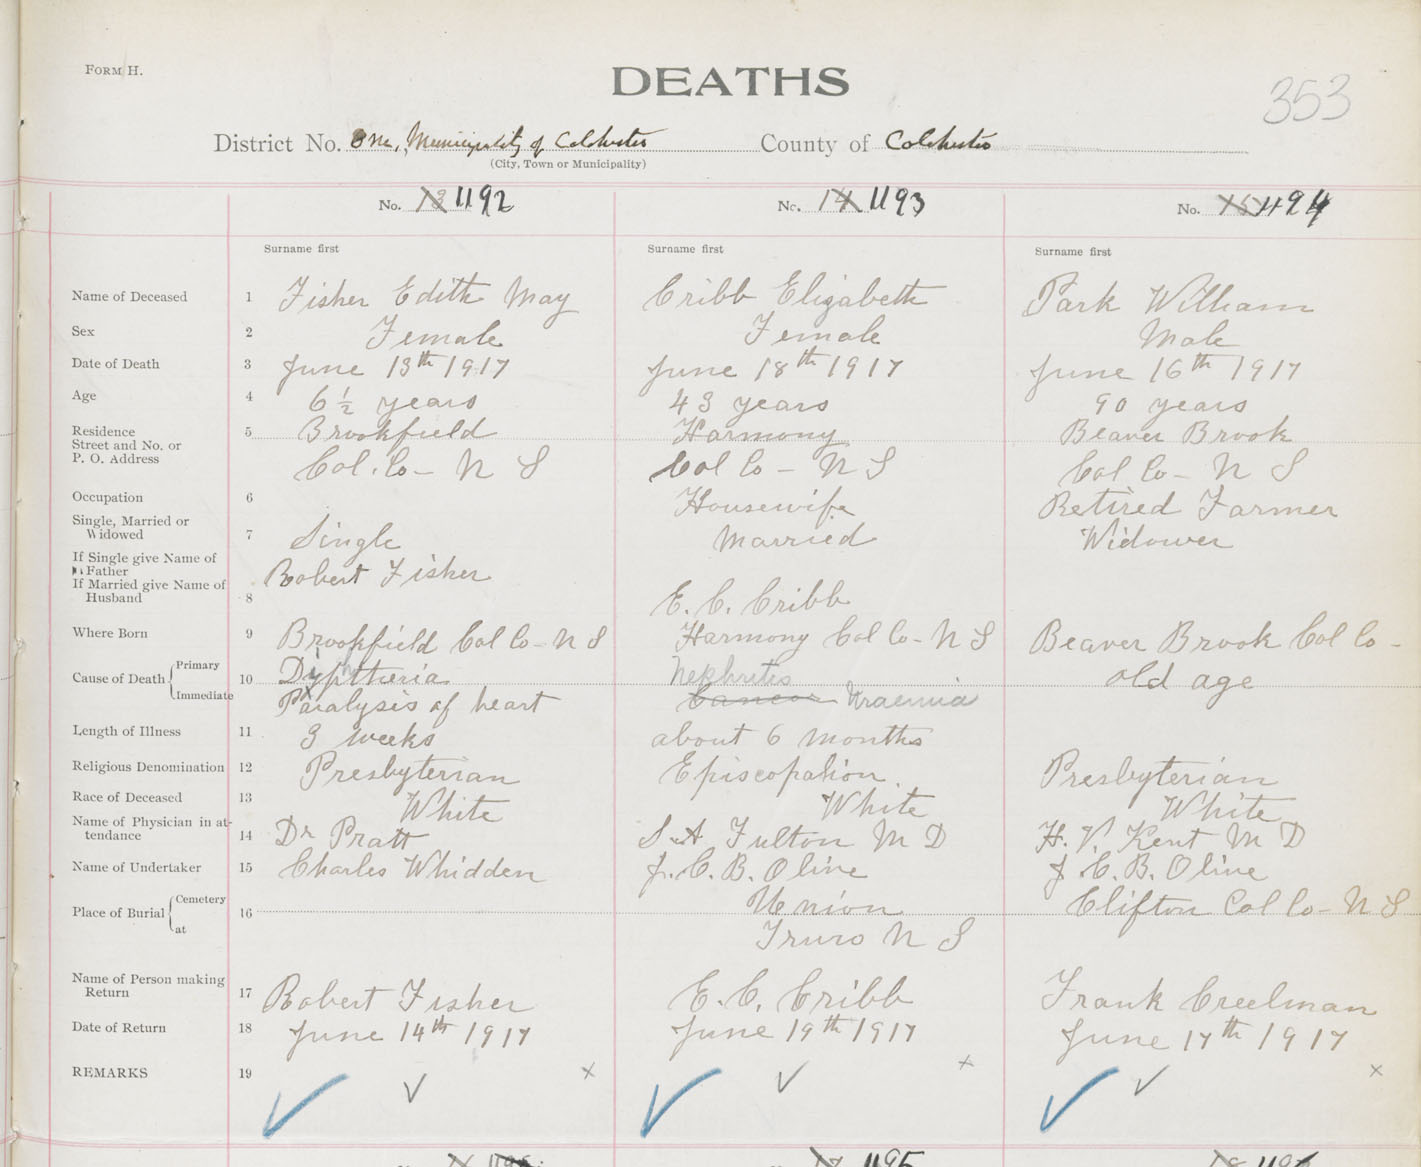 FORM H.
DEATHS
353
District No. One, Municipality of Colchester County of Colchester
(City, Town or Municipality)
No. 13 1192 No. 14 1193 No. 15 1194
Surname first Surname first Surname first
Name of Deceased 1 Fisher Edith May Cribb Elizabeth Park William
Sex 2 Female Female Male
Date of Death 3 June 13th 1917 June 18th 1917 June 16th 1917
Age 4 6 ½ years 43 years 90 years
Residence 5 Brookfield Harmony Beaver Brook
Street and No. or
P. O. Address Col. Co - N S Col Co - N S Col Co - N S
Occupation 6 Housewife Retired Farmer
Single, Married or
Widowed 7 Single Married Widower
If Single give Name of
Father Robert Fisher
If Married give Name of
Husband 8 E. C. Cribb
Where Born 9 Brookfield Col Co - N S Harmony Col Co - N S Beaver Brook Col Co -
Cause of Death Primary 10 Diphtheria Nephritis old age
Immediate Paralysis of heart Cancer Uraemia
Length of Illness 11 3 weeks about 6 months
Religious Denomination 12 Presbyterian Episcopalion Presbyterian
Race of Deceased 13 White White White
Name of Physician in at-
tendance 14 Dr Pratt S. A Fulton M D H. V. Kent M D
Name of Undertaker 15 Charles Whidden J. C. B. Olive J. C. B. Olive
Place of Burial Cemetery 16 Union Clifton Col Co - N S
at Truro N S
Name of Person making
Return 17 Robert Fisher E. C. Cribb Frank Creelman
Date of Return 18 June 14th 1917 June 19th 1917 June 17th 1917
REMARKS 19
1195